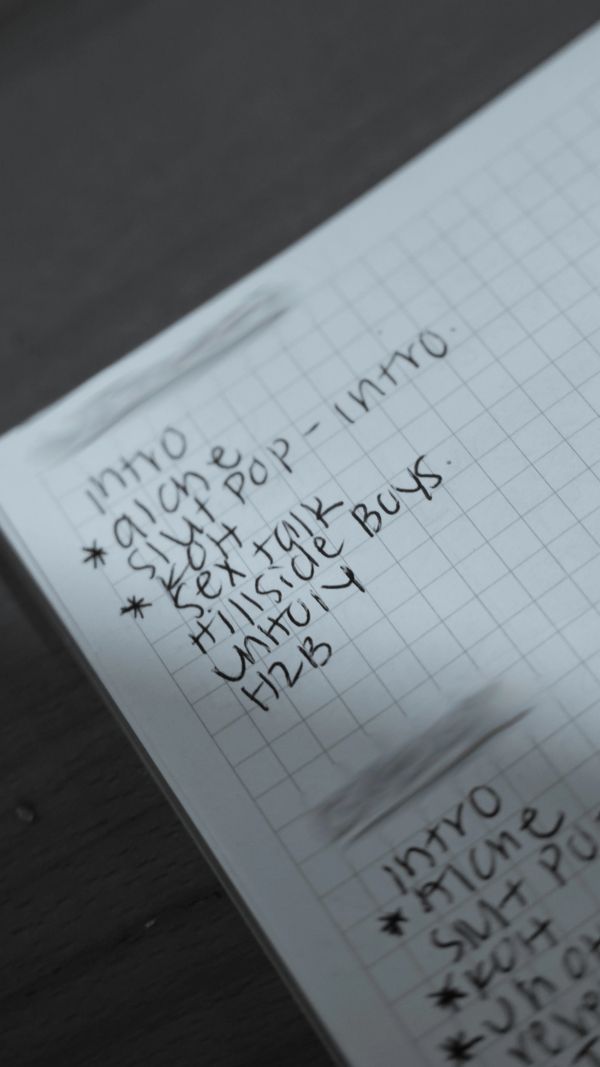 intro
* alone
slut POP - intro.
* KOH
sex talk
Hillside Boys.
unHoly
H2B
intro
* Alone
slut PO
* KOH
* un
reve